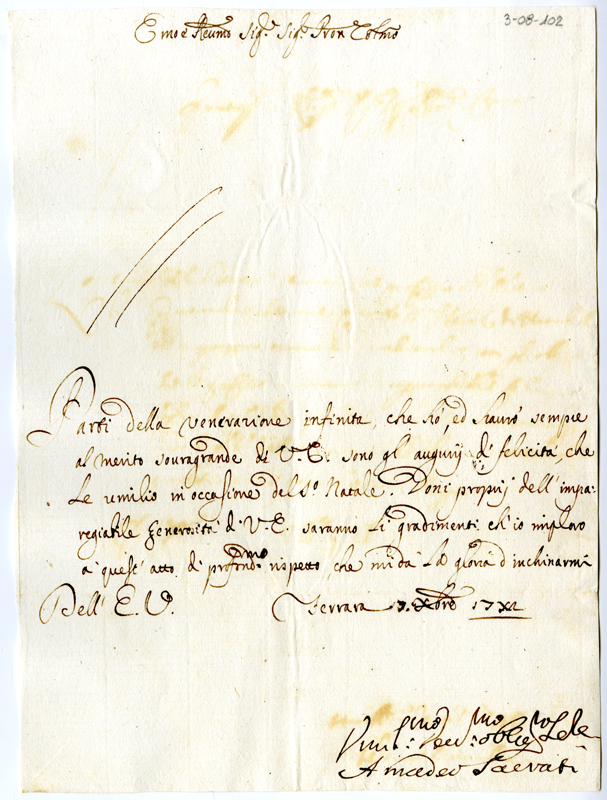 3-08-102
Emo e Reumo Sig.r Sig.r Pron Colmo
Parti della venerazione infinita, che hò, ed havrò sempre
al merito souragrande di V.E. sono gl'augurij di felicità, che
Le umilio in occasione del S.o Natale. Doni proprij dell'impa„
regiabile generosità di V.E. saranno li gradimenti ch'io imploro
a' quest'atto di profond.mo rispetto, che mi dà la gloria d'inchinarmi
Dell' E.V. Ferrara Xbre
Amadeo